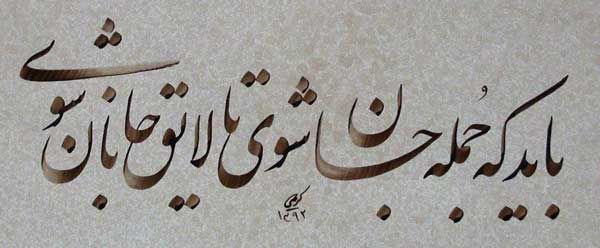 باید که جُمله جان شوی تا لایق جانان شوی
کرمی
۱۳۹۲